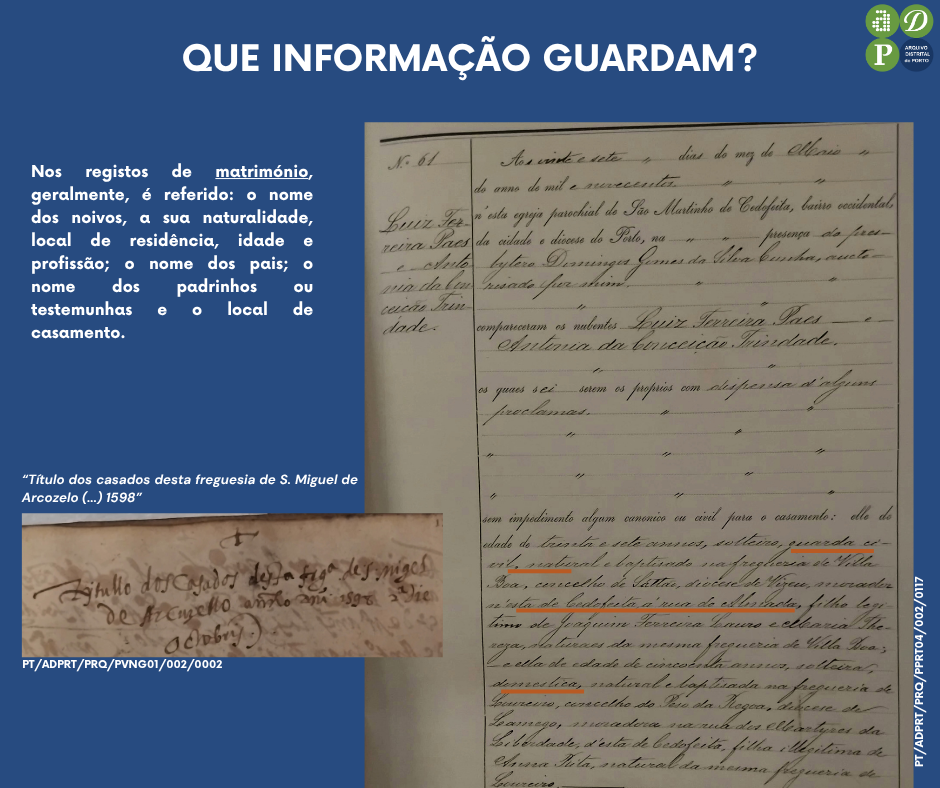 QUE INFORMAÇÃO GUARDAM?
a D
P ARQUIVO
DISTRITAL
do PORTO
Nos registos de matrimónio,
geralmente, é referido: o nome
dos noivos, a sua naturalidade,
local de residência, idade e
profissão; o nome dos pais; o
nome dos padrinhos ou
testemunhas e o local de
casamento.
“Título dos casados desta freguesia de S. Miguel de
Arcozelo (...) 1598”
Titullo dos Casados desta
de Arcuzello 1598
Octubro
PT/ADPRT/PRQ/PVNG01/002/0002
Nº 61
Luiz Fer-
reira Paes
e Anto
nia da Con
ceição Trin-
dade.
Aos vinte e sete " dias do mez de Maio "
do anno de mil e novecentos, " "
n'esta egreja parochial de São Martinho de Cedofeita, bairro occidental,
da cidade e diocese do Porto, na " " presença do pres-
bytero Domingos Gomes da Silva Cunha, aucto-
risado por mim. " "
" "
compareceram os nubentes Luiz Ferreira Paes — e —
Antonia da Conceição Trindade.
" "
os quaes sei serem os proprios com dispensa d'alguns
proclamas. " "
" "
" " "
" "
" " "
sem impedimento algum canonico ou civil para o casamento: elle de
edade de trinta e sete annos, solteiro, guarda ci-
vil, natural e baptisado na freguezia de Villa
Boa, concelho de Sattão, diocese de Vizeu, morador
n'esta de Cedofeita, á rua do Almada, filho legi-
timo de Joaquim Ferreira Lauro e Maria The-
reza, naturaes da mesma freguezia de Villa Boa;
— e ella de edade de cincoenta annos, solteira,
domestica, natural e baptisada na freguezia de
Loureiro, concelho do Peso da Regoa, diocese de
Lamego, moradora na rua dos Martyres da
Liberdade, d'esta de Cedofeita, filha illegitima de
Anna Rita, natural da mesma freguezia de
Loureiro.
PT/ADPRT/PRQ/PPRT04/002/0117